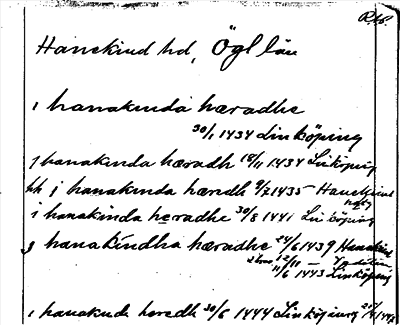 Hanekind hd, Ögl län
i hanakinda hæradhe
30/1 1434 Linköping
j hanakinda hæradh 18/11 1434 Linköping
hk j hanakinda hæradh 9/2 1435 Hanekind
i hanakinda heradhe 30/8 1441 Linköping
j hanakindha hæradhe 24/6 1439 Hanekind
12/11 —
11/6 1443 Linköping
i hanakind heredh 30/6 1444 Linköping